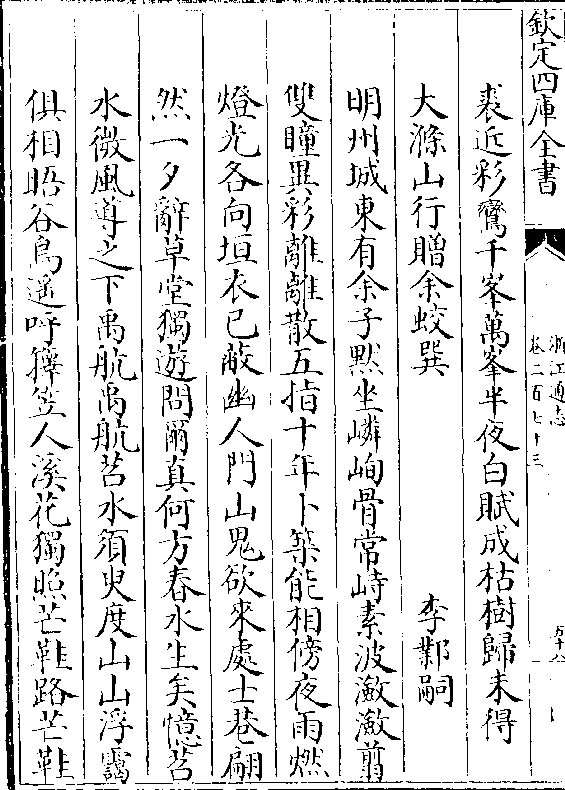 欽定四庫全書
浙江通志
卷二百七十三
裘近彩鸞千峯萬峯半夜白賦成枯樹歸未得
大滌山行贈余蛟巽 李鄴嗣
明州城東有余子默坐嶙峋骨常峙素波瀲瀲翦
雙瞳異彩離離散五指十年卜築能相傍夜雨燃
燈光各向垣衣已蔽幽人門山鬼欲來處士巷翩
然一夕辭草堂獨遊問爾真何方春水生矣憶苕
水微風導之下禹航禹航苕水須臾度山山浮靄
俱相晤谷鳥遥呼籜笠人溪花獨照芒鞋路芒鞋